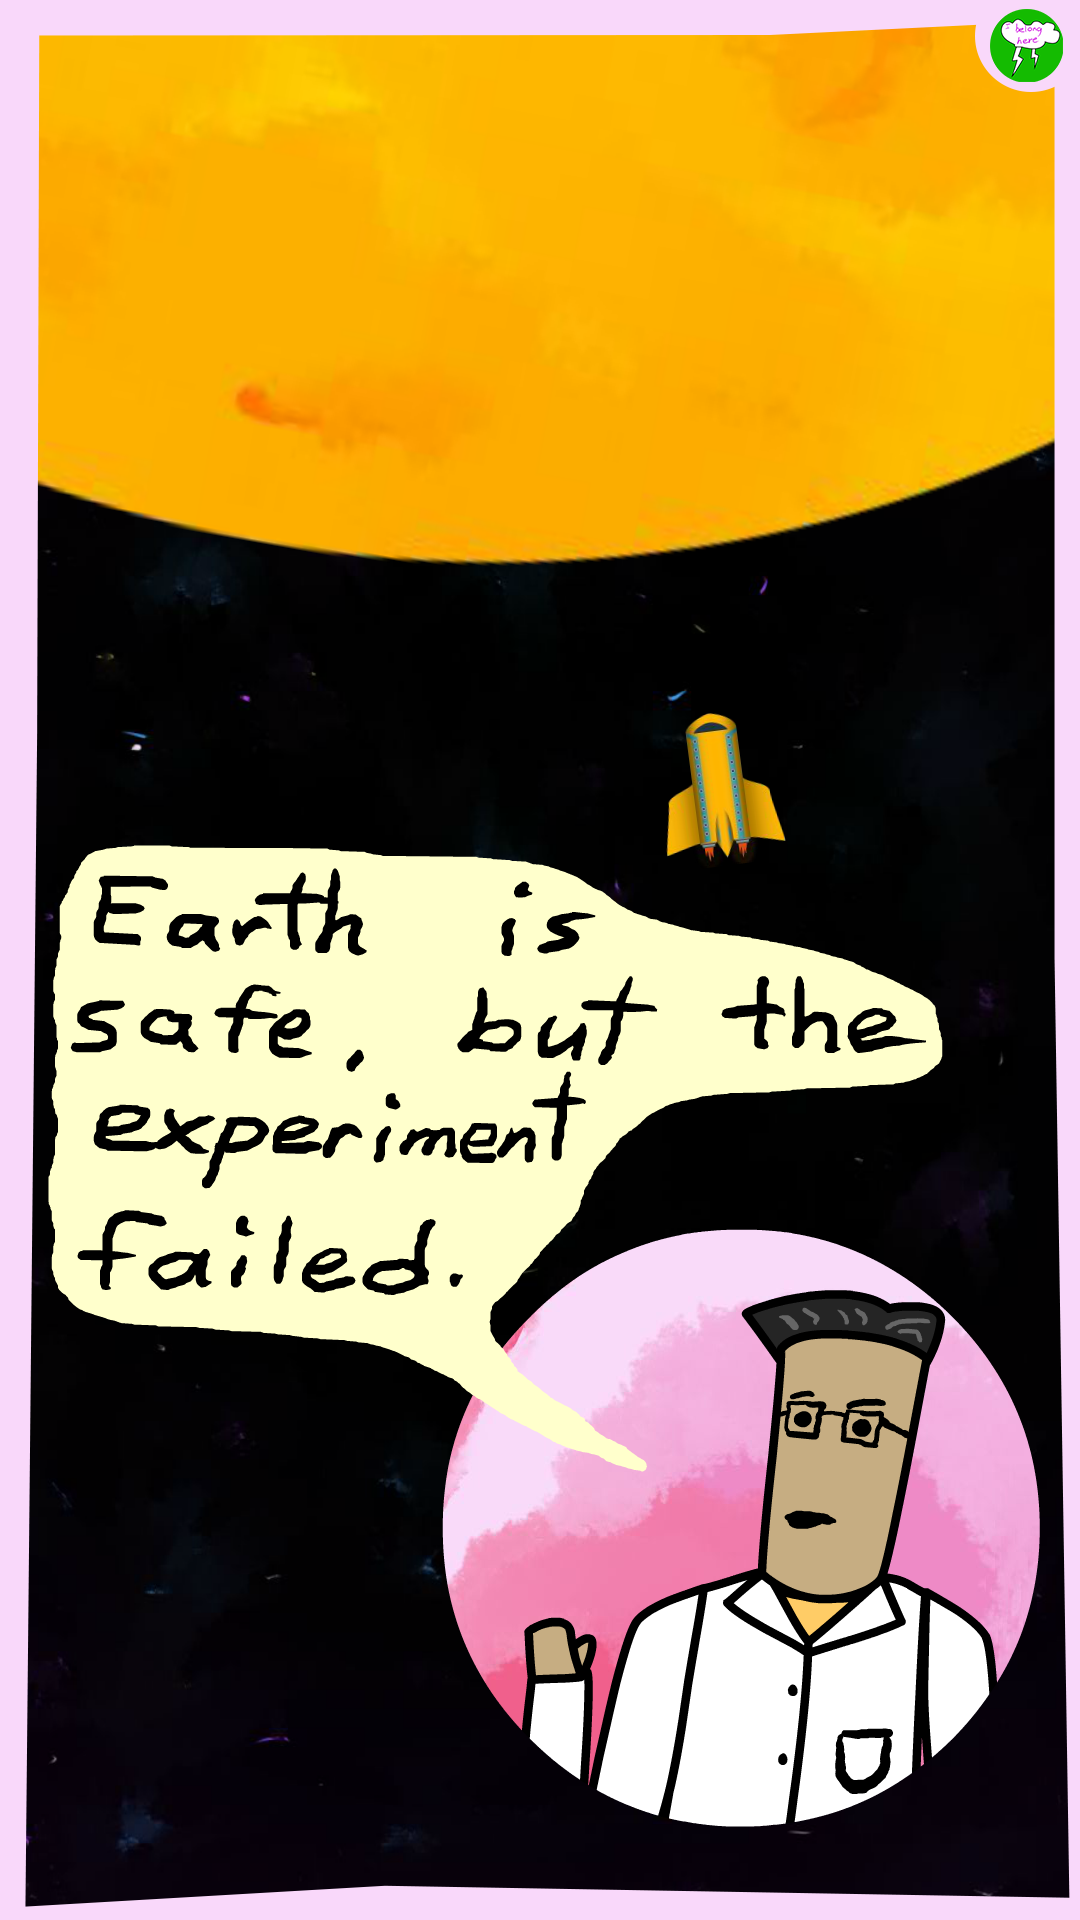 belong
here
Earth is
safe, but the
experiment
failed.